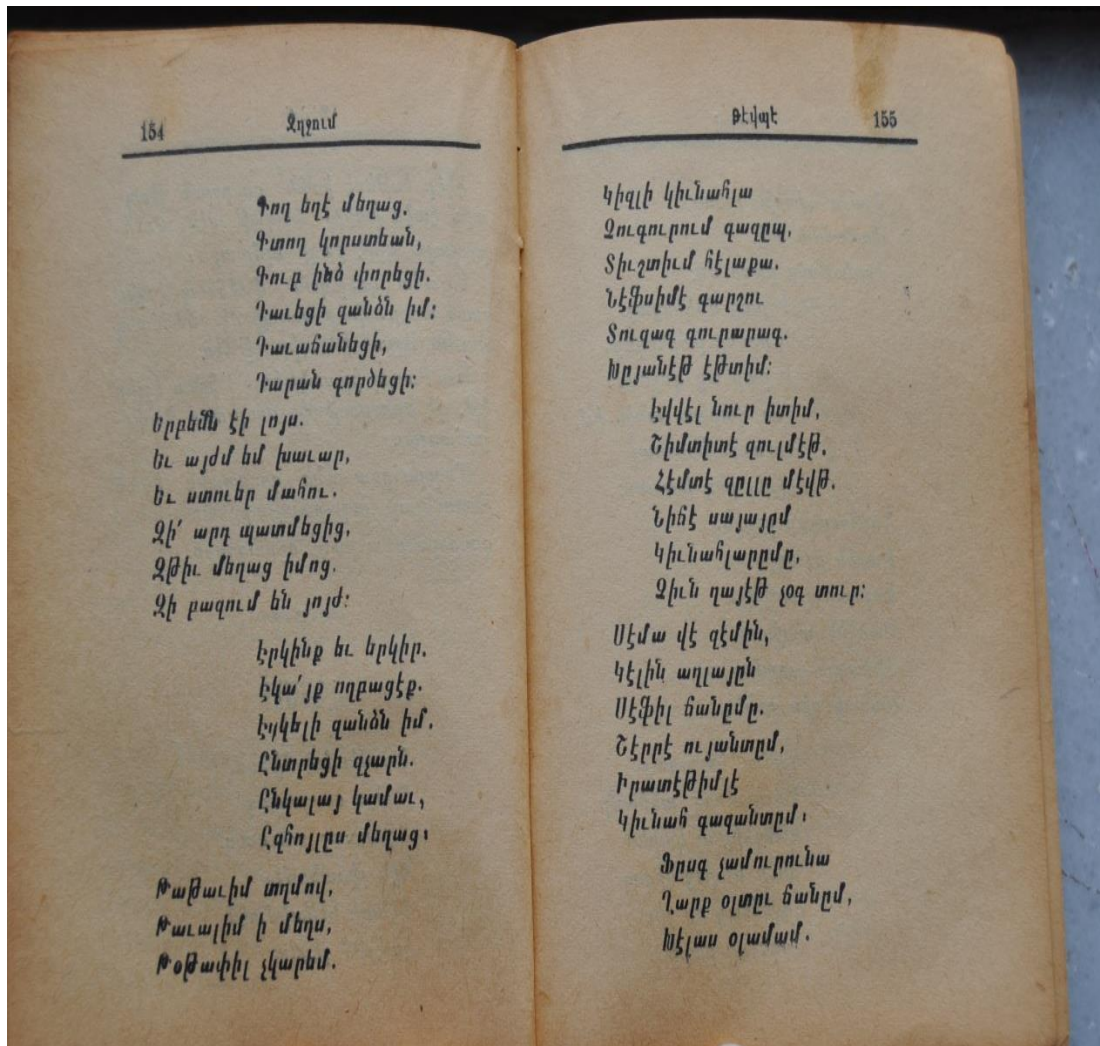 154 Զղջում
Գող եղէ մեղաց.
Գտող կորստեան,
Գուբ ինձ փորեցի.
Դաւեցի զանձն իմ:
Դաւաճանեցի,
Դարան գործեցի:
Երբեմն էի լոյս.
Եւ այժմ եմ խաւար,
Եւ ստուեր մահու.
Զի՛ արդ պատմեցից,
Զթիւ մեղաց իմոց.
Զի բազում են յոյժ:
Էրկինք եւ երկիր.
Էկա՛յք ողբացէք.
Էյկելի զանձն իմ.
Ընտրեցի զչարն.
Ընկալայ կամաւ,
Ըզհոյլըս մեղաց։
Թաթաւիմ տղմով,
Թաւալիմ ի մեղս,
Թօթափիլ չկարեմ.
Թէվպէ 155
Կիզլի կիւնահլա
Չուգուրում գազըպ,
Տիւշտիւմ հէլաքա.
Նէֆսիմէ գարշու
Տուզագ գուրարագ.
Խըյանէթ էթտիմ:
Էվվէլ նուր իտիմ,
Շիմտիտէ զուլմէթ.
Հէմտէ զըլլը մէվթ.
Նիճէ սայայըմ
Կիւնահլարըմը,
Զիւն ղայէթ չօգ տուր:
Սէմա վէ զէմին,
Կէլին աղլայըն
Սէֆիլ ճանըմը.
Շէրրէ ույանտըմ,
Իրատէթիմլէ
Կիւնահ գազանտըմ։
Ֆըսգ չամուրունա
Ղարք օլտըւ ճանըմ,
Խէլաս օլամամ.